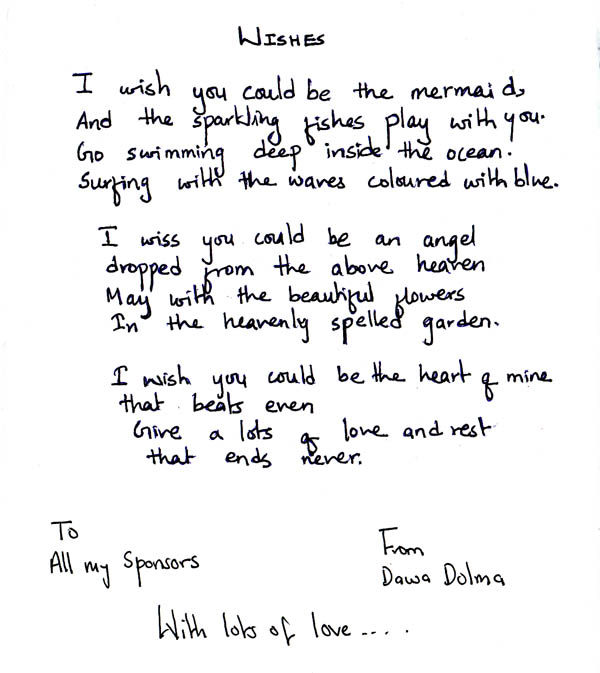 WISHES
I wish you could be the mermaid,
And the sparkling fishes play with you.
Go swimming deep inside the ocean.
Surfing with the waves coloured with blue.
I wiss you could be an angel
dropped from the above heaven
May with the beautiful flowers
In the heavenly spelled garden.
I wish you could be the heart of mine
that beats even
Give a lots of love and rest
that ends never.
To
All my Sponsors
From
Dawa Dolma
With lots of love ....